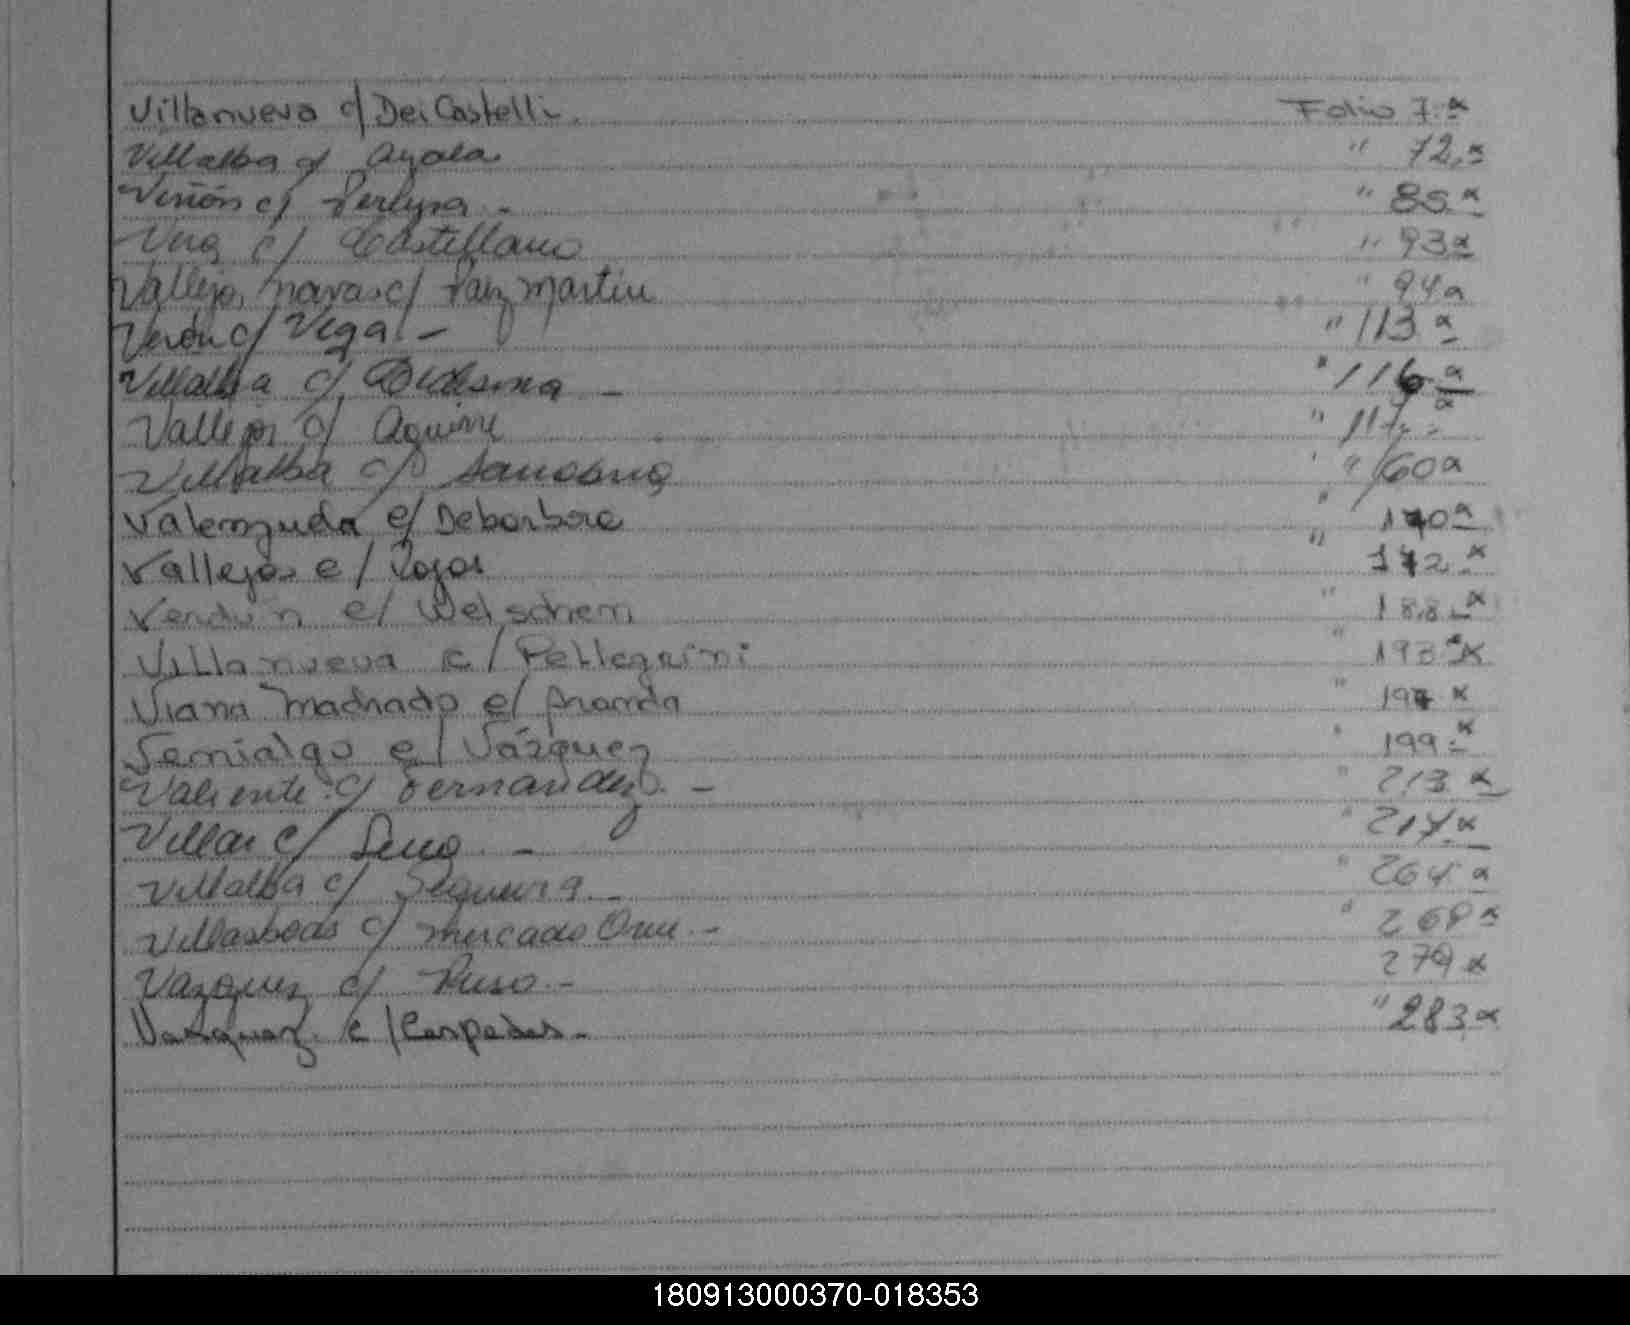 Villanueva c/ Dei Castelli. Folio 7.a
Villalba c/ Ayala " 72.a
Viñón c/ Pereyra - " 85.a
Vera c/ Castellano " 93a
Vallejos Navas c/ Paiz Martin " 94a
Verón c/ Vega. - " 113 a
Villalba c/ Ledesma - " 116 a
Vallejos c/ Aguirre " 117 a
Villalba c/ " 160a
Valenzuela c/ Debarbora " 170a
Vallejos c/ Rojas " 172.a
Verdún c/ Welschen " 188.a
Villanueva c/ Pellegrini " 193 a
Viana Machado c/ Aranda " 197 a
c/ Vázquez " 199.a
Valiente c/ Fernandez. - " 213 a
Villar c/ - " 214 a
Villalba c/ Sequeira - " 264 a
Villasboas c/ Mercado - " a
Vazquez c/ - 279 a
Vazquez c/ Cespedes - " 283 a
180913000370-018353